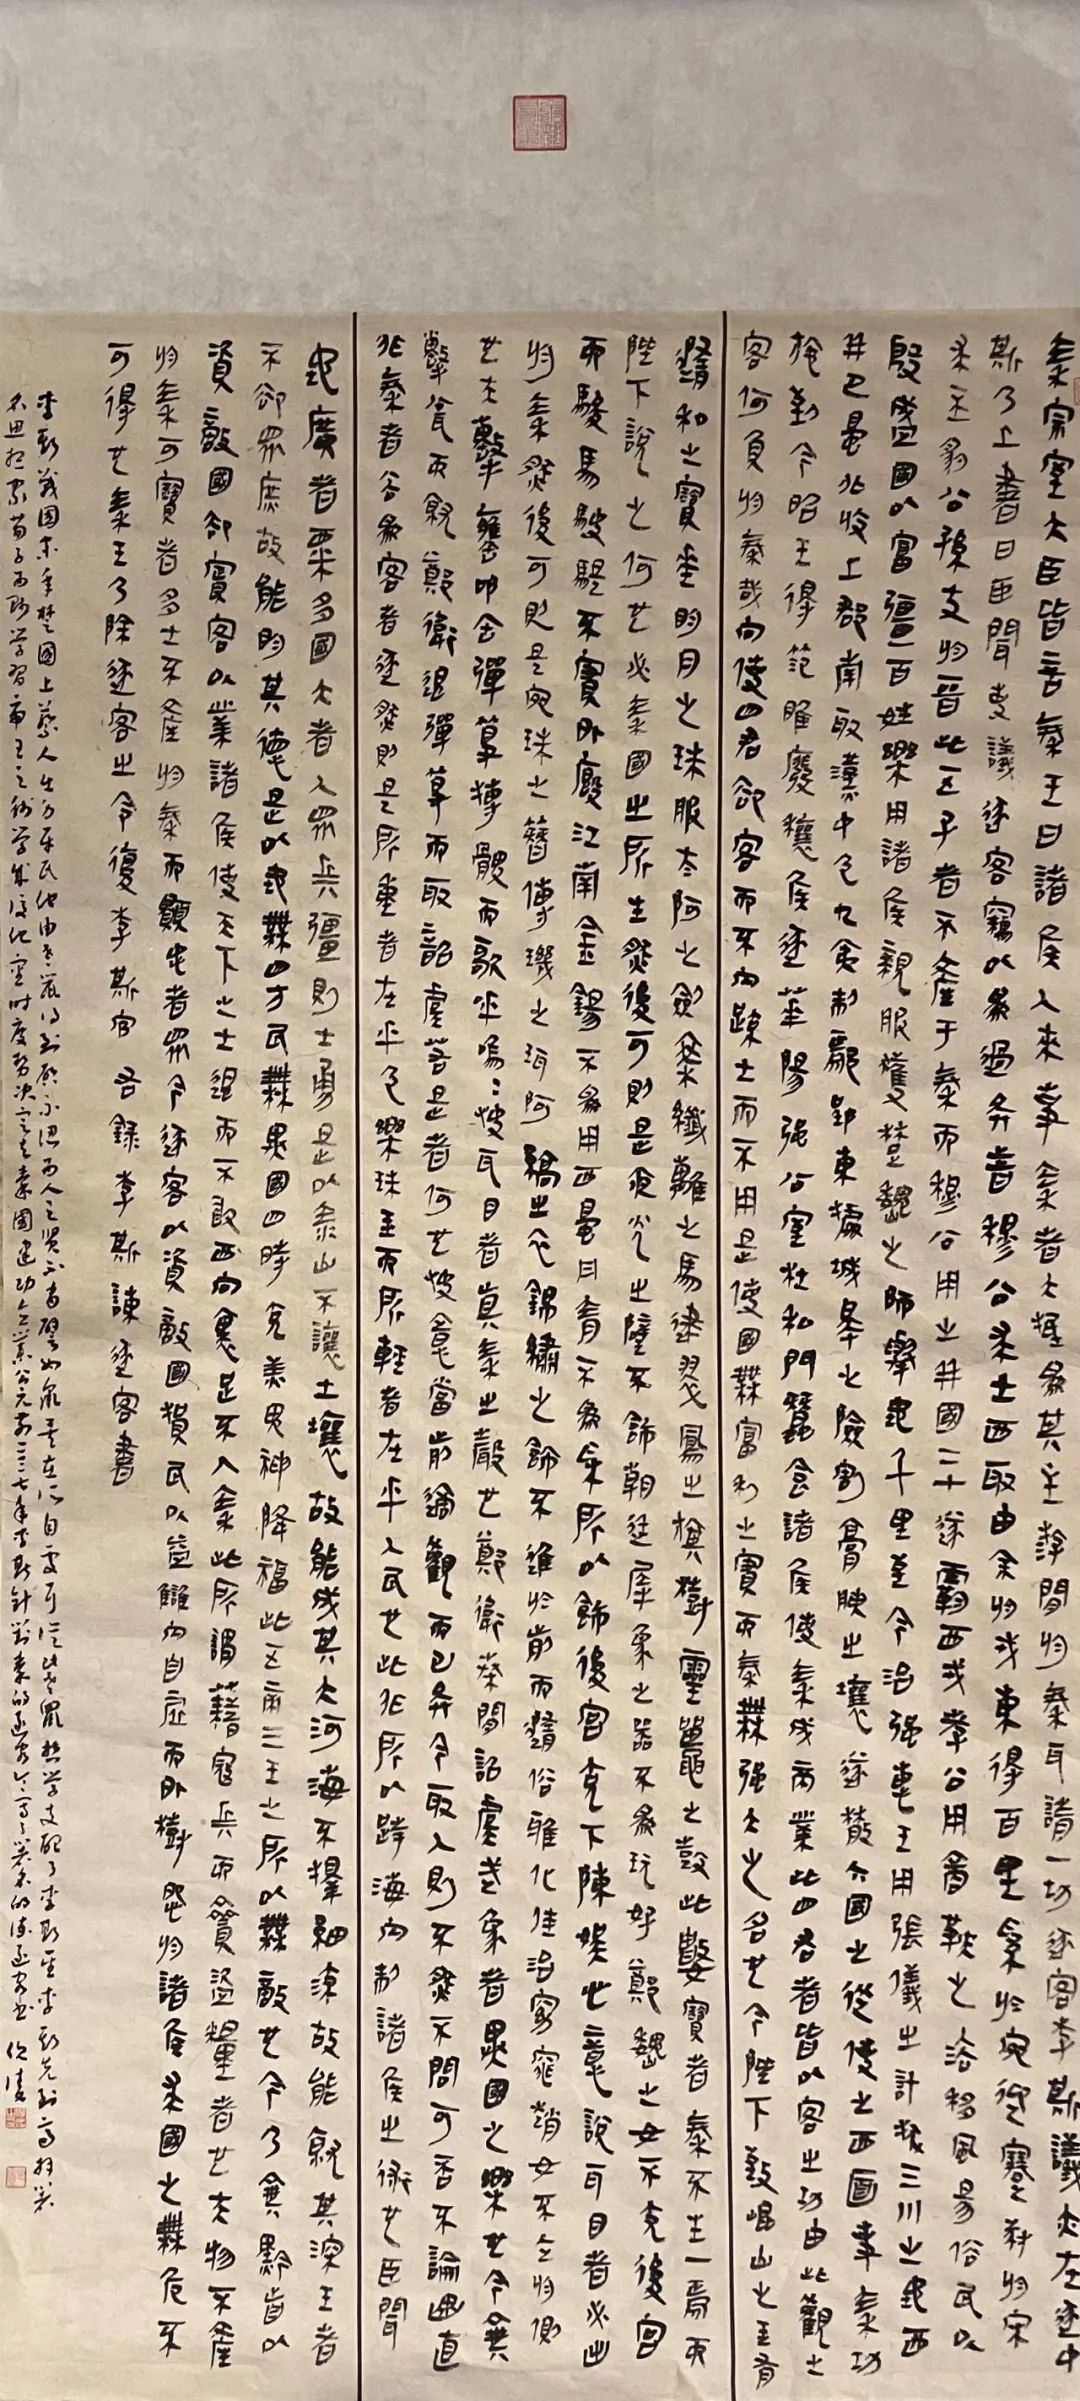 秦宗室大臣皆言秦王曰諸侯人來事秦者大抵為其主游間於秦耳請一切逐客李斯議亦在逐中
斯乃上書曰臣聞吏議逐客竊以為過矣昔穆公求士西取由余於戎東得百里奚於宛迎蹇叔於宋
求丕豹公孫支於晉此五子者不產于秦而穆公用之并國三十遂霸西戎孝公用商鞅之法移風易俗民以
殷盛國以富彊百姓樂用諸侯親服獲楚魏之師舉地千里至今治强惠王用張儀之計拔三川之地西
并巴蜀北收上郡南取漢中包九夷制鄢郢東據城皋之險割膏腴之壤遂散六國之從使之西面事秦功
施到今昭王得范雎廢穰侯逐華陽强公室杜私門蠶食諸侯使秦成帝業此四君者皆以客之功由此觀之
客何負於秦哉向使四君卻客而不內疏士而不用是使國無富利之實而秦無强大之名也今陛下致崐山之玉有
隨和之寶垂明月之珠服太阿之劍乘纖離之馬建翠鳳之旗樹靈鼉之鼓此數寶者秦不生一焉而
陛下說之何也必秦國之所生然後可則是夜光之璧不飾朝廷犀象之器不為玩好鄭魏之女不充後宮
而駿馬駃騠不實外廄江南金錫不為用西蜀丹青不為采所以飾後宮充下陳娛心意說耳目者必出
於秦然後可則是宛珠之簪傅璣之珥阿縞之衣錦繡之飾不進於前而隨俗雅化佳冶窈窕趙女不立於側
也夫擊甕叩缶彈箏搏髀而歌乎嗚嗚快耳目者真秦之聲也鄭衛桑間韶虞武象者異國之樂也今棄
擊甕而就鄭衛退彈箏而取韶虞若是者何也快意當前適觀而已矣今取人則不然不問可否不論曲直
非秦者去為客者逐然則是所重者在乎色樂珠玉而所輕者在乎人民也此非所以跨海內制諸侯之術也臣聞
地廣者粟多國大者人眾兵彊則士勇是以泰山不讓土壤故能成其大河海不擇細流故能就其深王者
不卻眾庶故能明其德是以地無四方民無異國四時充美鬼神降福此五帝三王之所以無敵也今乃棄黔首以
資敵國卻賓客以業諸侯使天下之士退而不敢西向裹足不入秦此所謂藉寇兵而齎盜糧者也夫物不產
於秦可寶者多士不產於秦而願忠者眾今逐客以資敵國損民以益讎內自虛而外樹怨於諸侯求國之無危不
可得也秦王乃除逐客之令復李斯官 右錄李斯諫逐客書
李斯戰國末年楚國上蔡人出身平民他由老鼠得到啟示感為人之賢不肖譬如鼠矣在所自處耳從此老鼠哲學支配了李斯一生李斯先到高好業